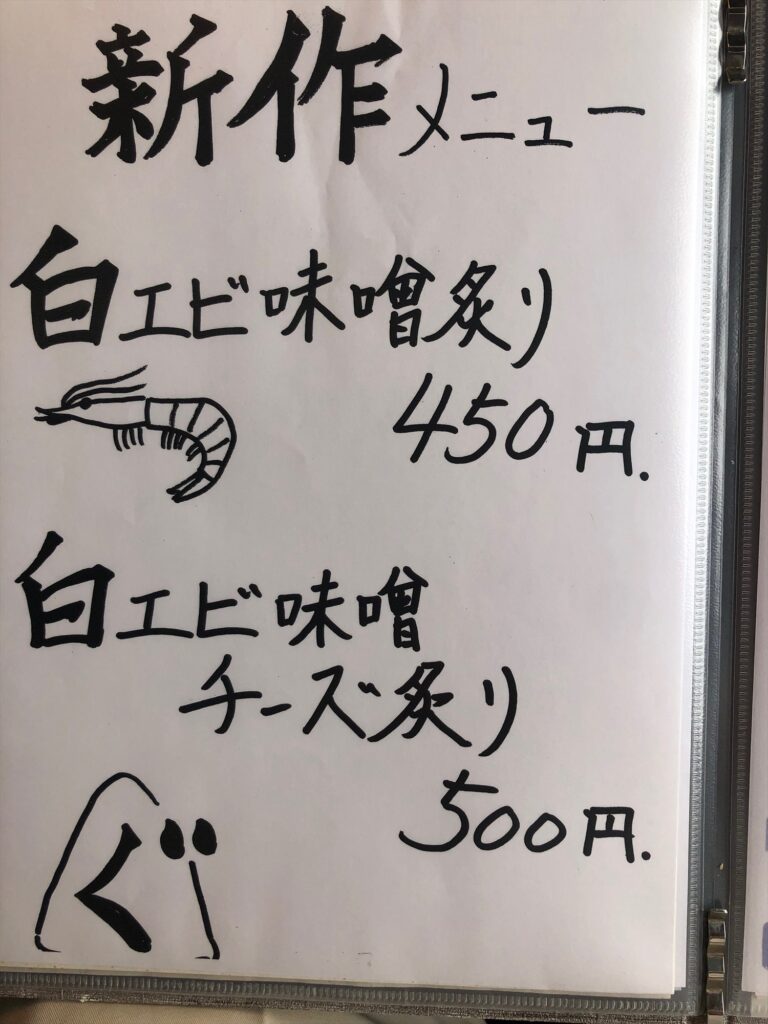 新作メニュー
白エビ味噌炙り
450円.
白エビ味噌
チーズ炙り
500円.
ぐ